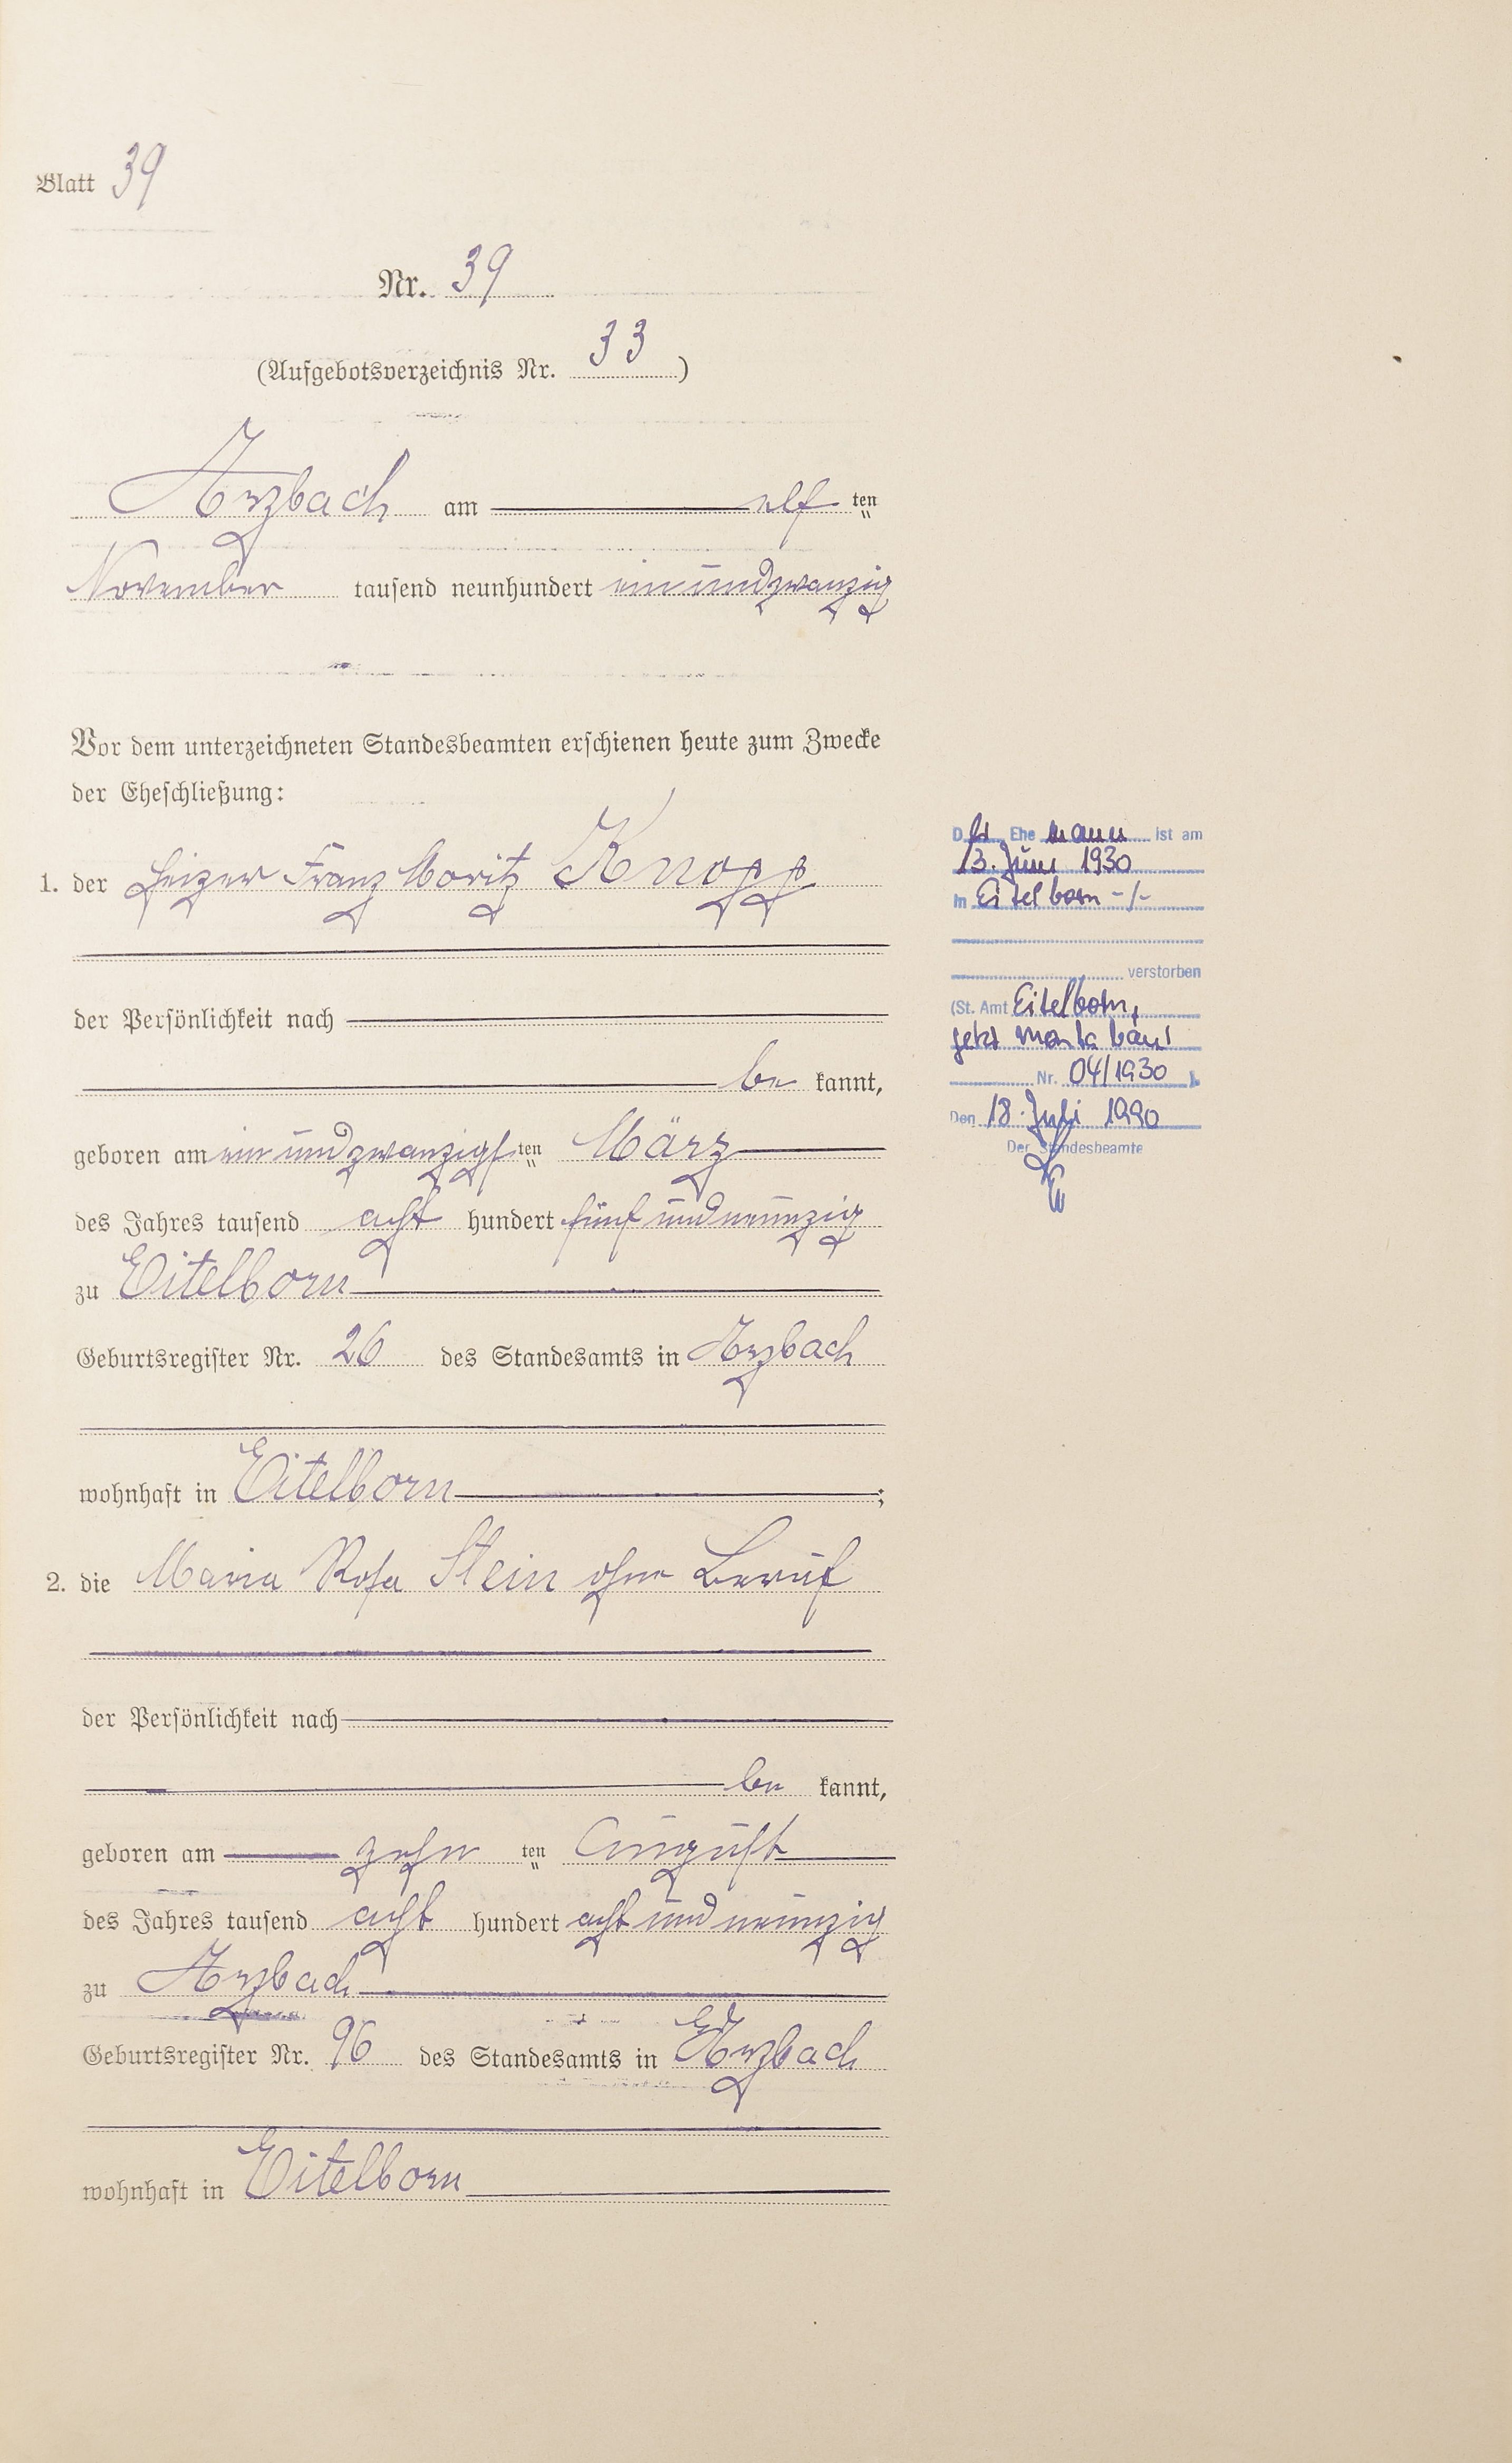 Blatt 39
Nr. 39
(Aufgebotsverzeichnis Nr. 33)
Arzbach am elf ten
November tausend neunhundert einundzwanzig
Vor dem unterzeichneten Standesbeamten erschienen heute zum Zwecke
der Eheschließung:
1. der Heizer Franz Moritz Knopp
der Persönlichkeit nach
be kannt,
geboren am ein und zwanzigsten März
des Jahres tausend acht hundert fünf und neunzig
zu Eitelborn
Geburtsregister Nr. 26 des Standesamts in Arzbach
wohnhaft in Eitelborn;
2. die Maria Rosa Stein ohne Beruf
der Persönlichkeit nach
be kannt,
geboren am zehn ten August
des Jahres tausend acht hundert acht und neunzig
zu Arzbach
Geburtsregister Nr. 96 des Standesamts in Arzbach
wohnhaft in Eitelborn
Der Ehemann ist am
13. Juni 1930
in Eitelborn -/-
verstorben
(St. Amt Eitelborn,
jetzt Montabaur
Nr. 04/1930 ).
Den 18. Juli 1990
Der Standesbeamte